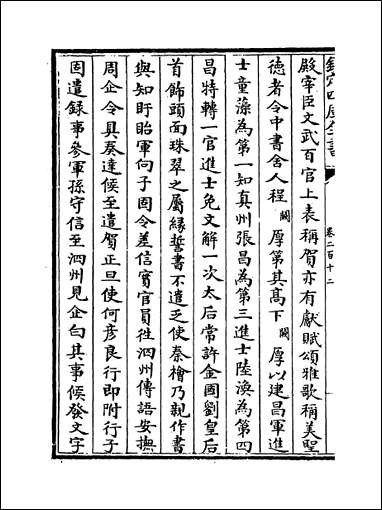 欽定四庫全書
卷二百十二
殿宰臣文武百官上表稱賀亦有獻賦頌雅歌稱美聖
德者令中書舍人程闕厚第其髙下闕厚以建昌軍進
士童藻為第一知真州張昌為第三進士陸渙為第四
昌特轉一官進士免文解一次太后常許金國劉皇后
首飾頭面珠翠之屬緣誓書不遣乏使秦檜乃親作書
與知盱眙軍向子固令差信實官員徃泗州傳語安撫
周企令具奏達候至遣賀正旦使何彦良行即附行子
固遣録事參軍孫守信至泗州見企白其事候發文字